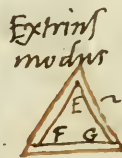 Extrins
modus
E
F G